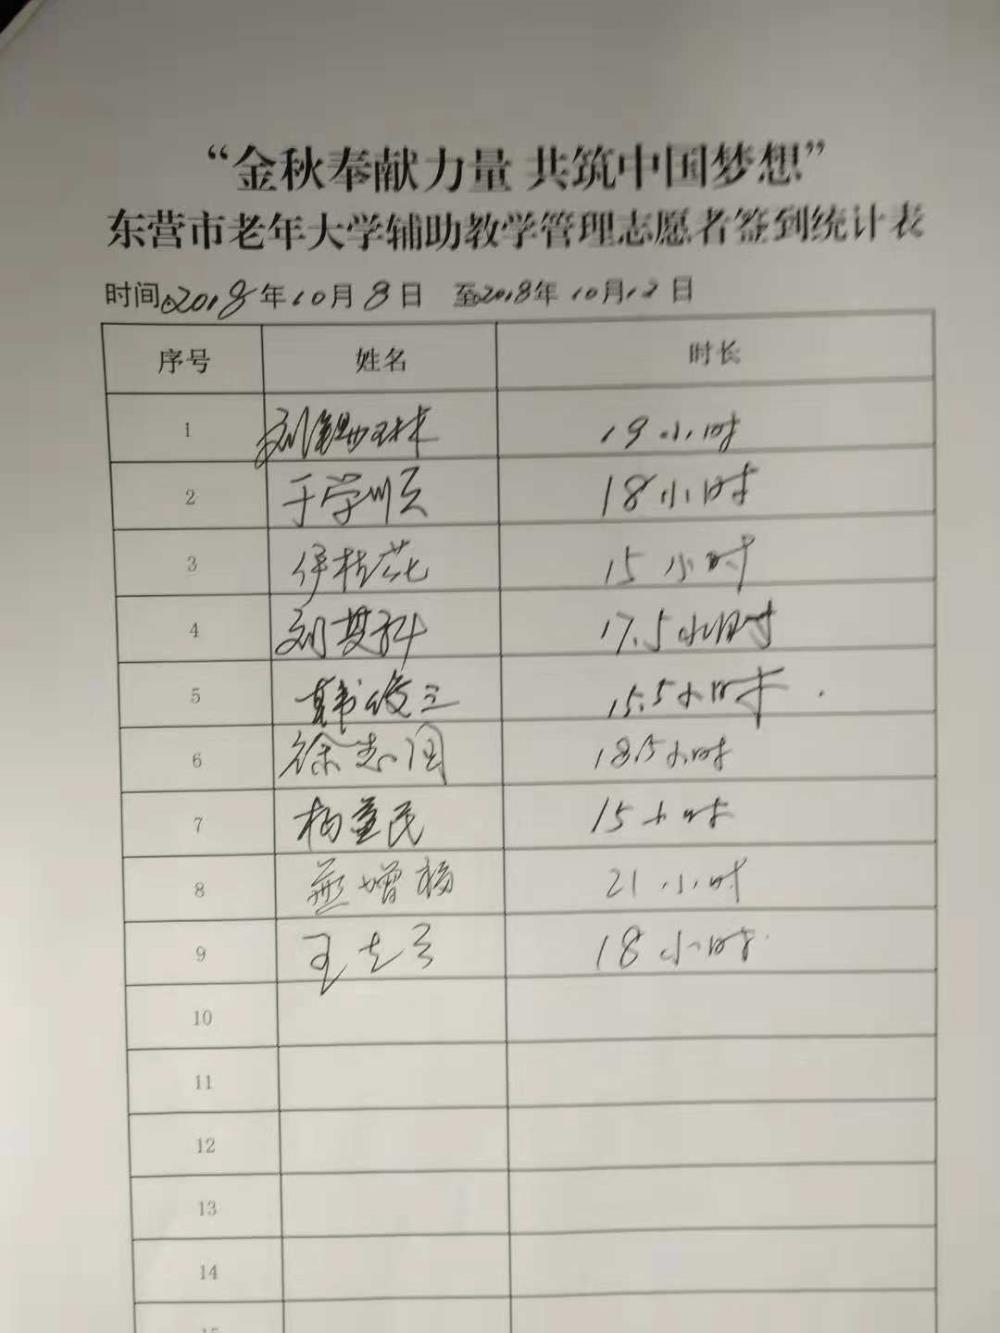 “金秋奉献力量 共筑中国梦想”
东营市老年大学辅助教学管理志愿者签到统计表
时间:2018年10月8日 至2018年10月12日
序号 姓名 时长
1 19小时
2 于学顺 18小时
3 伊桂花 15小时
4 刘其科 17.5小时
5 韩俊三 15.5小时
6 徐志国 18.5小时
7 杨重民 15小时
8 燕增福 21小时
9 18小时
10
11
12
13
14